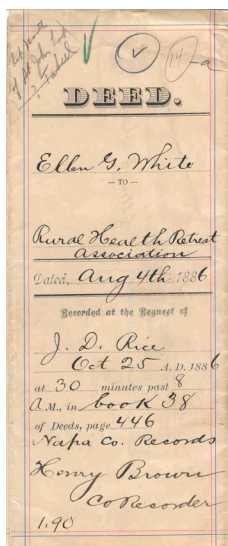 14 a
DEED.
Ellen G. White
— TO —
Rural Health Retreat
Association
Dated, Aug 4th 1886
Recorded at the Request of
J. D. Rice
Oct 25 A. D. 1886
at 30 minutes past 8
A.M., in book 38
of Deeds, page 446
Napa Co. Records
Henry Brown
Co Recorder
1.90